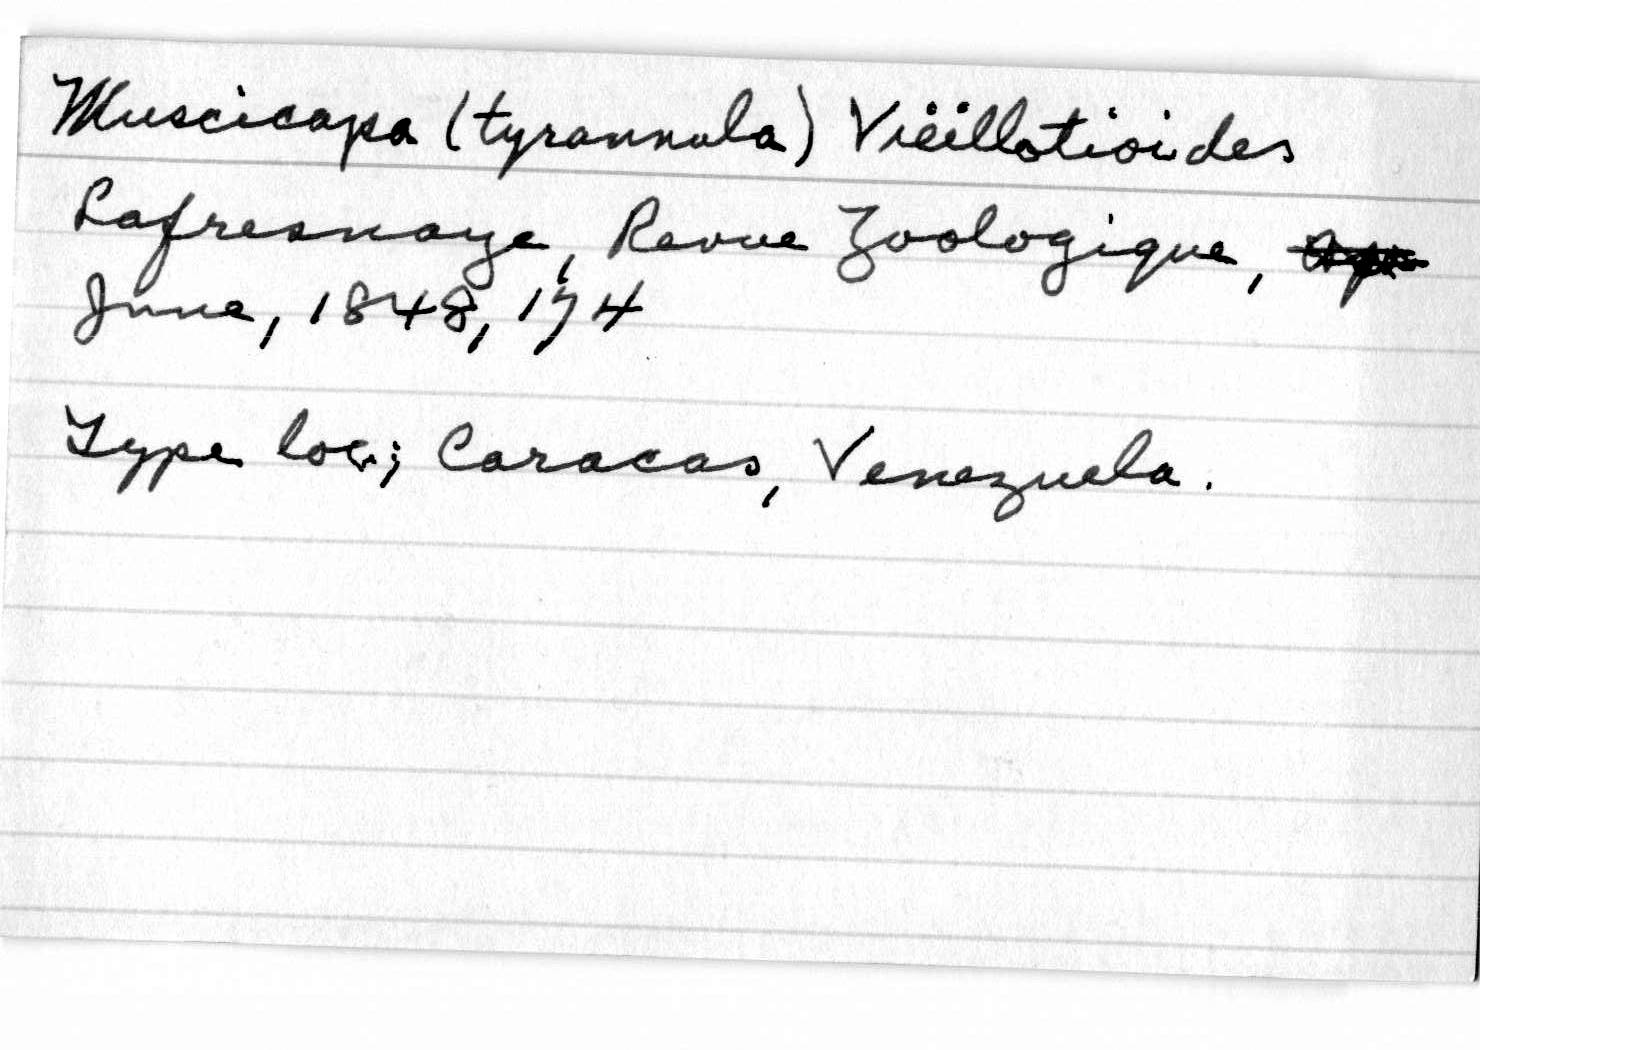 Muscicapa (tyrannula) Vieillotioides
Lafresnaye, Revue Zoologique,
June, 1848, 174
Type loc; Caracas, Venezuela.